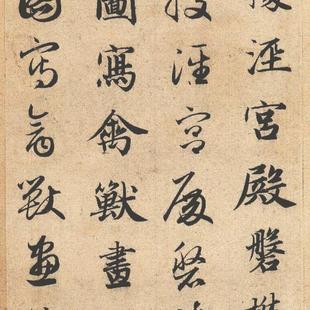 涇宮殿磐
涇宮殿磐
圖寫禽獸畫
圖寫禽獸畫